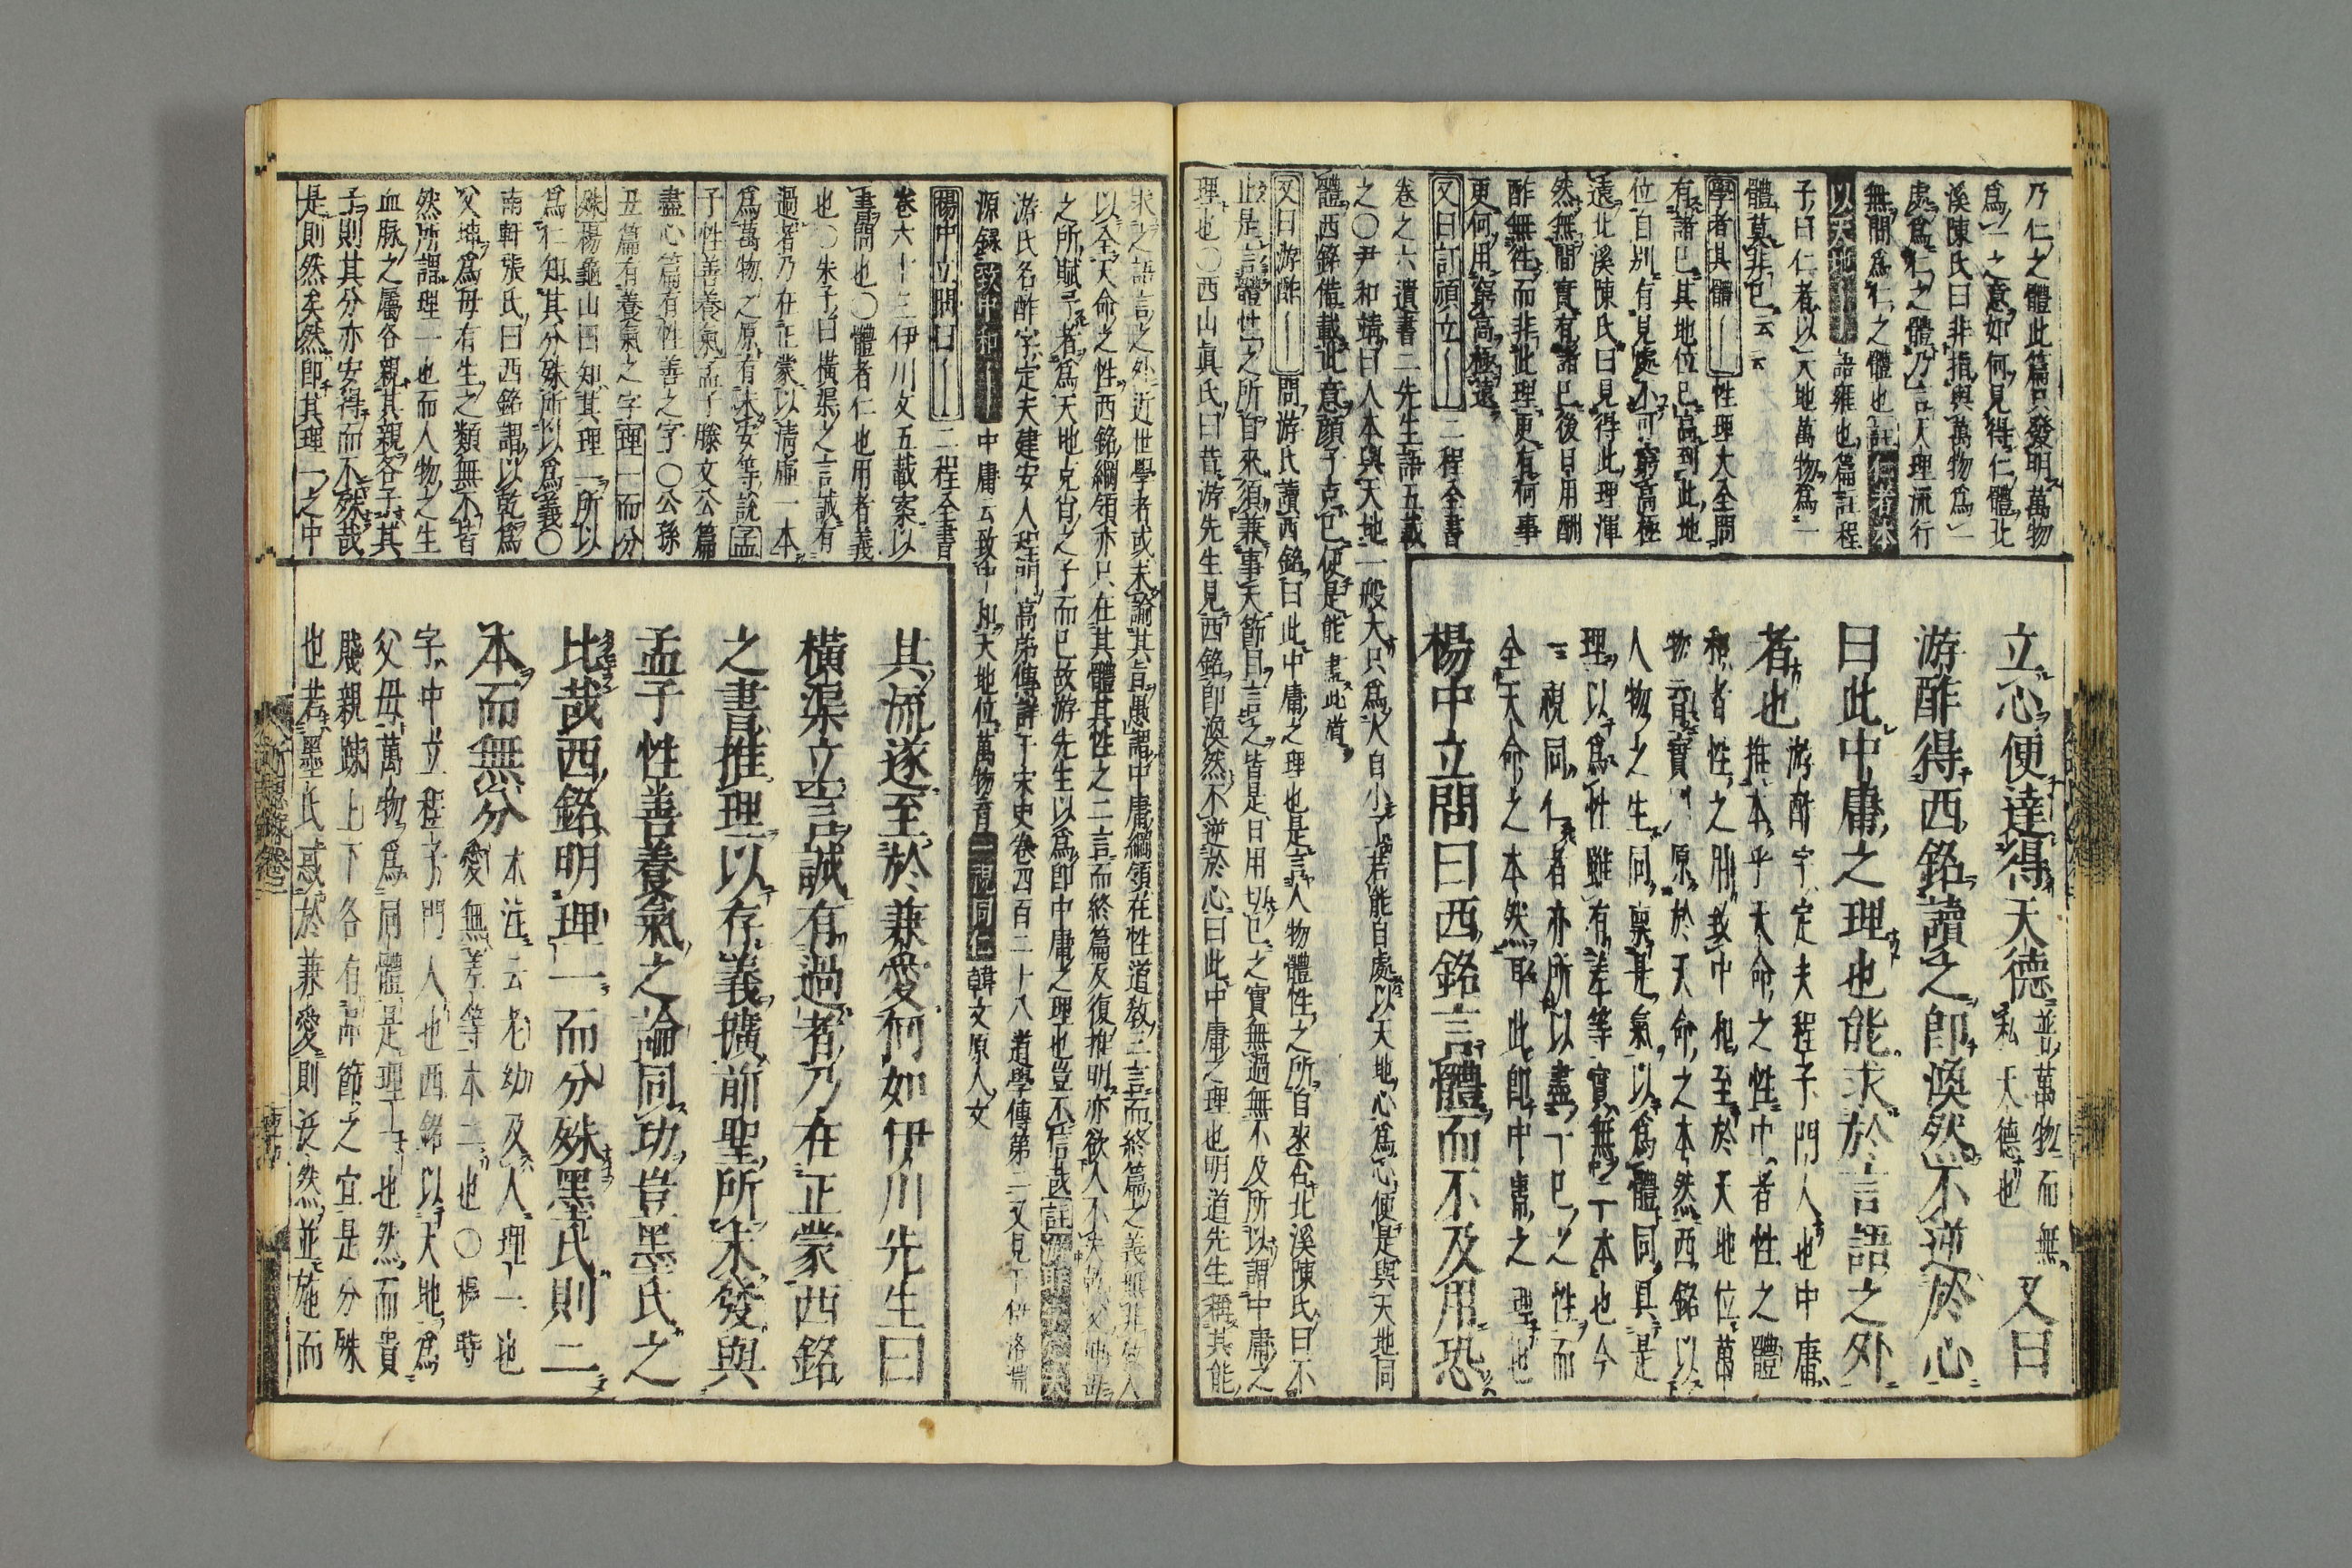 乃仁之體此篇只發明萬物
爲一之意如何見得仁體北
溪陳氏曰非指與萬物爲一
處爲仁之體乃言天理流行
無間爲仁之體也註仁者本
以天地〡語雍也篇註程
子曰仁者以天地萬物爲一
體莫非已云云
學者其體〡性理大全問
有諸已其地位已高到此地
位自別有見處不可窮高極
遠北溪陳氏曰見得此理渾
然無間實有諸已後日用酬
酢無往而非此理更有何事
更何用窮高極遠
又曰訂頑立〡二程全書
卷之六遺書二先生語五載
之○尹和靖曰人本與天地一般大只爲人自小了若能自處以天地之心爲心便是與天地同
體西銘備載此意顏子克已便是能盡此道
又曰游酢〡問游氏讀西銘曰此中庸之理也是言人物體性之所自來否北溪陳氏曰不
止是言體性之所自來須兼事天節目言之皆是日用切已之實無過無不及所以謂中庸之
理也○西山眞氏曰昔游先生見西銘即渙然不逆於心曰此中庸之理也明道先生稱其能
立心便達得天德並萬物而無私天德也又曰
游酢得西銘讀之即渙然不逆於心
曰此中庸之理也能求於言語之外
者也游酢字定夫程子門人也中庸
推本乎天命之性中者性之體
和者性之用致中和至於天地位萬
物育實原於天命之本然西銘以
人物之生同稟是氣以爲體同具是
理以爲性雖有差等實無二本也今
一視同仁者亦所以盡一已之性而
全天命之本然耶此即中庸之理也
楊中立問曰西銘言體而不及用恐
求之語言之外近世學者或未諭其旨愚謂中庸綱領在性道教三言而終篇之義無非教人
以全天命之性西銘綱領亦只在其體其性之二言而終篇反復推明亦欲人不失乾父坤母
之所賦予者爲天地克肖之子而已故游先生以爲即中庸之理也豈不信哉註游酢字定夫
游氏名酢字定夫建安人程門高弟傳詳于宋史卷四百二十八道學傳第二又見于伊洛淵
源録致中和〡中庸云致中和天地位萬物育一視同仁韓文原人文
楊中立問曰〡二程全書
卷六十三伊川文五載案以
書問也○體者仁也用者義
也○朱子曰橫渠之言誠有
過者乃在正蒙以清虛一本
爲萬物之原有未安等說孟
子性善養氣孟子滕文公篇
盡心篇有性善之字○公孫
丑篇有養氣之字理一而分
殊楊龜山曰知其理一所以
爲仁知其分殊所以爲義○
南軒張氏曰西銘謂以乾爲
父坤爲母有生之類無不皆
然所謂理一也而人物之生
血脉之屬各親其親各子其
子則其分亦安得而不殊哉
是則然矣然即其理一之中
其流遂至於兼愛何如伊川先生曰
橫渠立言誠有過者乃在正蒙西銘
之書推理以存義擴前聖所未發與
孟子性善養氣之論同功豈墨氏之
比哉西銘明理一而分殊墨氏則二
本而無分本注云老幼及人理一也
愛無差等本二也○楊時
字中立程子門人也西銘以天地爲
父母萬物爲同體是理一也然而貴
賤親踈上下各有品節之宜是分殊
也若墨氏惑於兼愛則泛然並施而
近思録卷二